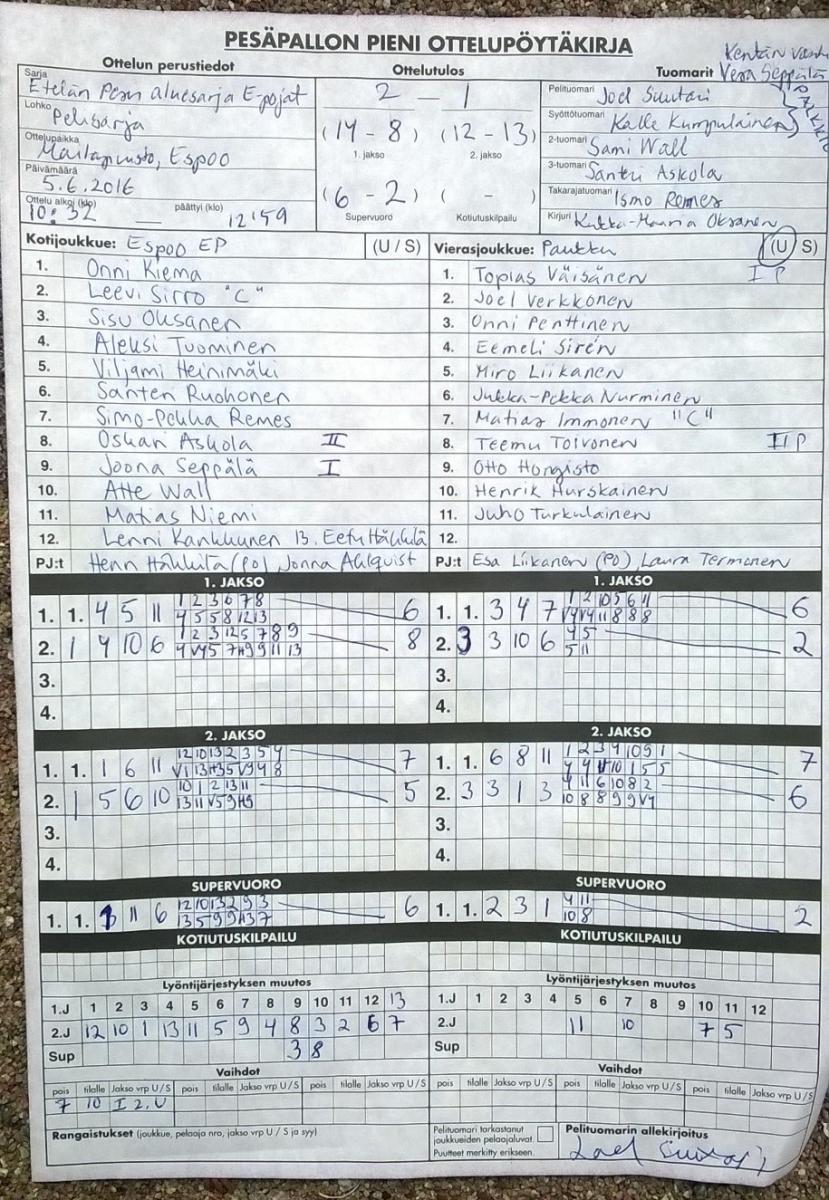 PESÄPALLON PIENI OTTELUPÖYTÄKIRJA
Ottelun perustiedot
Ottelutulos
Tuomarit
Kentän
Vesa Seppälä
Sarja
Etelän Pesn aluesarja E-pojat
Lohko
Pelisarja
Ottelupaikka
Mailapuisto, Espoo
Päivämäärä
5.6.2016
Ottelu alkoi (klo)
10:32
päättyi (klo)
12:59
2 – 1
(14 - 8) (12 - 13)
1. jakso 2. jakso
(6 - 2) ( - )
Supervuoro Kotiutuskilpailu
Pelituomari Joel Suutari
Syöttötuomari Kalle Kumpulainen
2-tuomari Sami Wall
3-tuomari Santeri Askola
Takarajatuomari Ismo Remes
Kirjuri Kukka-Maaria Oksanen
Kotijoukkue: Espoo EP (U / S)
1. Onni Kiema
2. Leevi Sirro "C"
3. Sisu Oksanen
4. Aleksi Tuominen
5. Viljami Heinimäki
6. Santeri Ruohonen
7. Simo-Pekka Remes
8. Oskari Askola II
9. Joona Seppälä I
10. Atte Wall
11. Matias Niemi
12. Lenni Kankkunen 13. Eetu Häkkilä
PJ:t Henri Häkkilä (PO) Jonna Ahlquist
Vierasjoukkue: Pankku (U / S)
1. Topias Väisänen I P
2. Joel Verkkonen
3. Onni Penttinen
4. Eemeli Sirén
5. Miro Liikanen
6. Jukka-Pekka Nurminen
7. Matias Immonen "C"
8. Teemu Toivonen II P
9. Otto Hongisto
10. Henrik Hurskainen
11. Juho Turkulainen
12.
PJ:t Esa Liikanen (PO), Laura Termonen
1. JAKSO
1. 1. 4 5 11 1 2 3 6 7 8 6
4 5 5 8 12 13
2. 1 4 10 6 1 2 3 12 5 7 8 9 8
3.
4.
1. JAKSO
1. 1. 3 4 7 1 2 10 5 6 11 6
V4 V4 11 8 8 8
2. 3 3 10 6 4 5 2
5 11
3.
4.
2. JAKSO
1. 1. 1 6 11 12 10 13 2 3 5 4 7
2. 1 5 6 10 10 1 2 13 11 5
3.
4.
2. JAKSO
1. 1. 6 8 11 1 2 3 4 10 9 1 7
2. 3 3 1 3 4 11 6 10 8 2 6
10 8 8 9 9 V4
3.
4.
SUPERVUORO
1. 1. 1 11 6 12 10 13 2 9 3 6
SUPERVUORO
1. 1. 2 3 1 4 11 2
10 8
KOTIUTUSKILPAILU
KOTIUTUSKILPAILU
Lyöntijärjestyksen muutos
1.J 1 2 3 4 5 6 7 8 9 10 11 12 13
2.J 12 10 1 13 11 5 9 4 8 3 2 6 7
Sup 3 8
Lyöntijärjestyksen muutos
1.J 1 2 3 4 5 6 7 8 9 10 11 12
2.J 11 10 7 5
Sup
Vaihdot
pois tilalle Jakso vrp U / S pois tilalle Jakso vrp U / S pois tilalle Jakso vrp U / S
7 10 I 2. U
Vaihdot
pois tilalle Jakso vrp U / S pois tilalle Jakso vrp U / S pois tilalle Jakso vrp U / S
Rangaistukset (joukkue, pelaaja nro, jakso vrp U / S ja syy)
Pelituomari tarkastanut
joukkueiden pelaajaluvat.
Puutteet merkitty erikseen.
Pelituomarin allekirjoitus